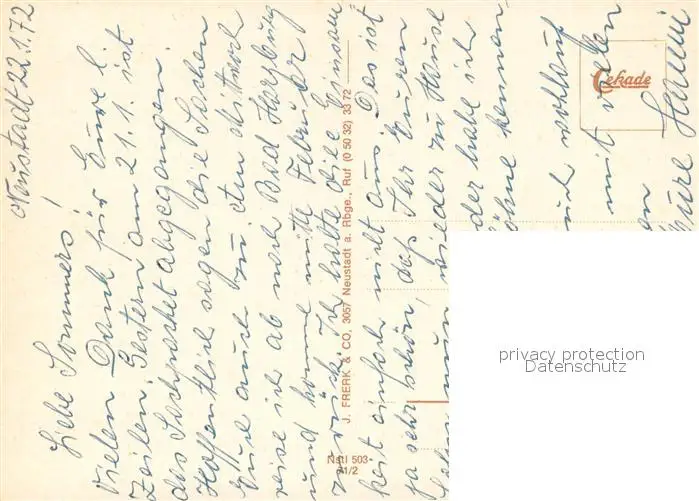 Neustadt 22.1.72
Liebe Sommers!
Vielen Dank für Eure l.
Zeilen. Gestern am 21.1. ist
das Sachpacket abgegangen.
Hoffentlich sagen die Sachen
Euch auch zu. Am Mittwoch
reise ich ab nach Bad Harzburg
und komme mitte Februar
zurück. Ich halte die Einsam
keit einfach nicht aus. Des ist
ja sehr schön, daß Ihr Euren
wieder zu Hause
der habe ich
Söhne kennen-
auch wohlauf
mit vielen
en
Eure Hanni
J. FRERK & CO, 3057 Neustadt a. Rbge., Ruf (0 50 32) 33 72
Nstl 503-
A1/2
Cekade
privacy protection
Datenschutz